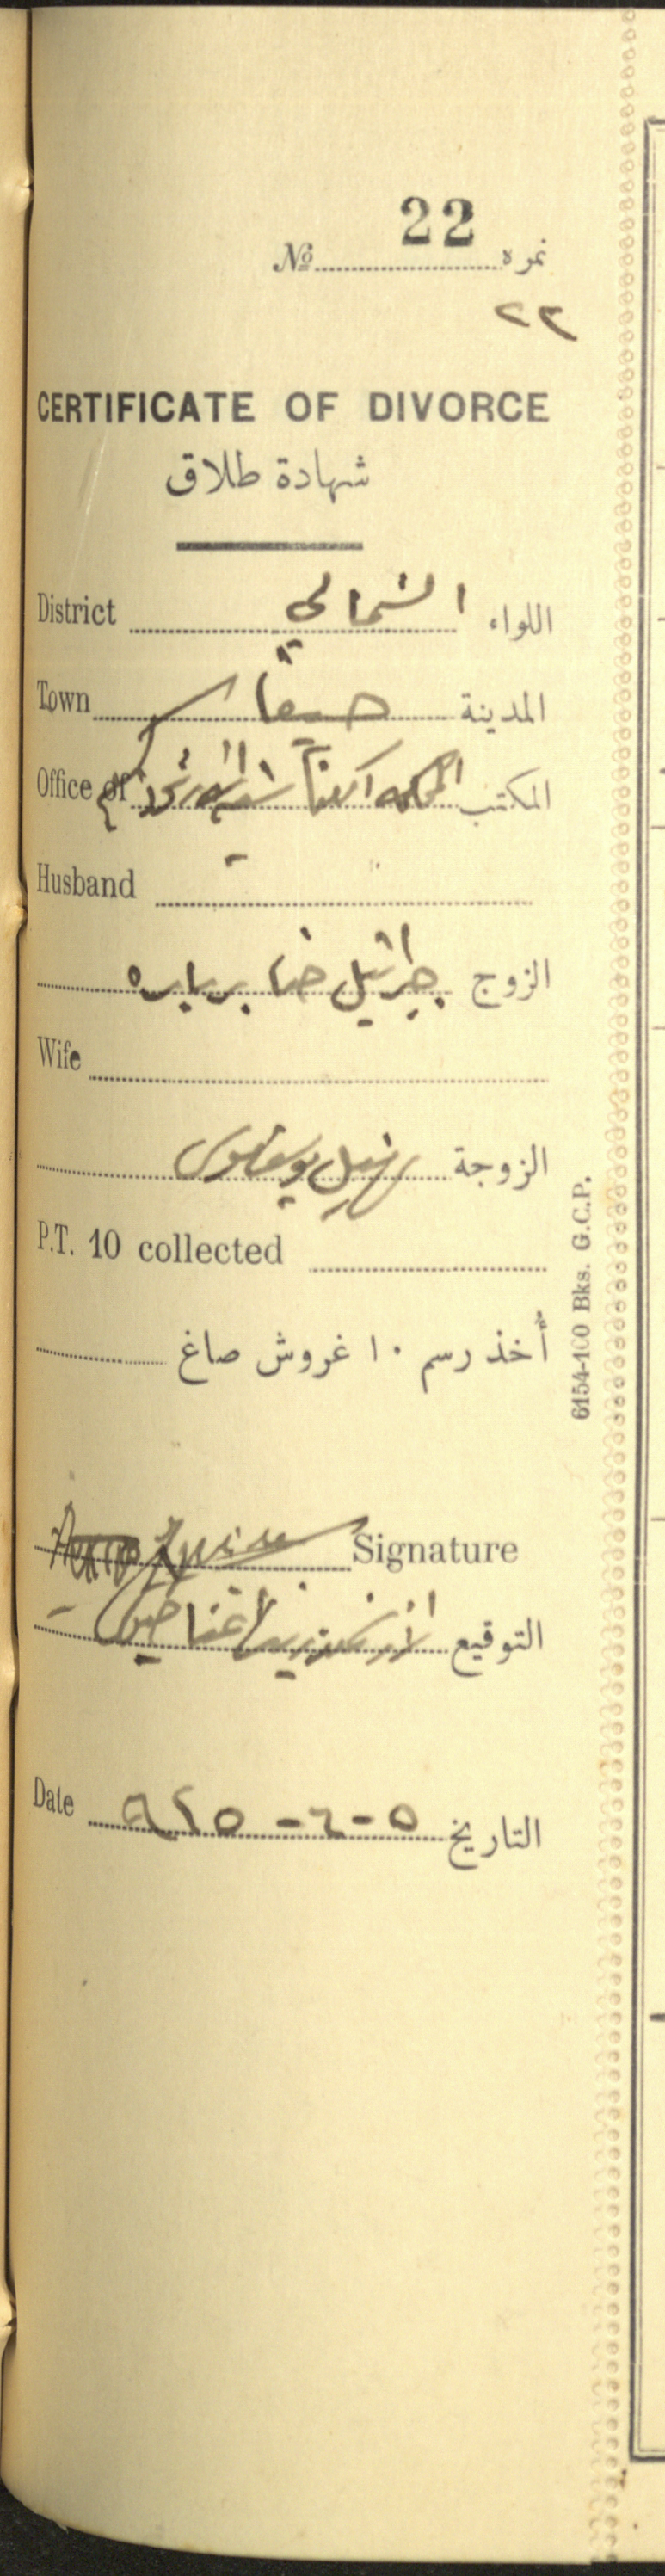 № 22 نمره
٢٢
CERTIFICATE OF DIVORCE
شهادة طلاق
District الشمالي اللواء
Town حيفا المدينة
Office of المحكمه المكتب
Husband
الزوج جبرائيل حنا برباره
Wife
الزوجة
P.T. 10 collected
أخذ رسم ١٠ غروش صاغ
6154-100 Bks. G.C.P.
Signature
التوقيع
Date ٥-٦-٩٢٥ التاريخ